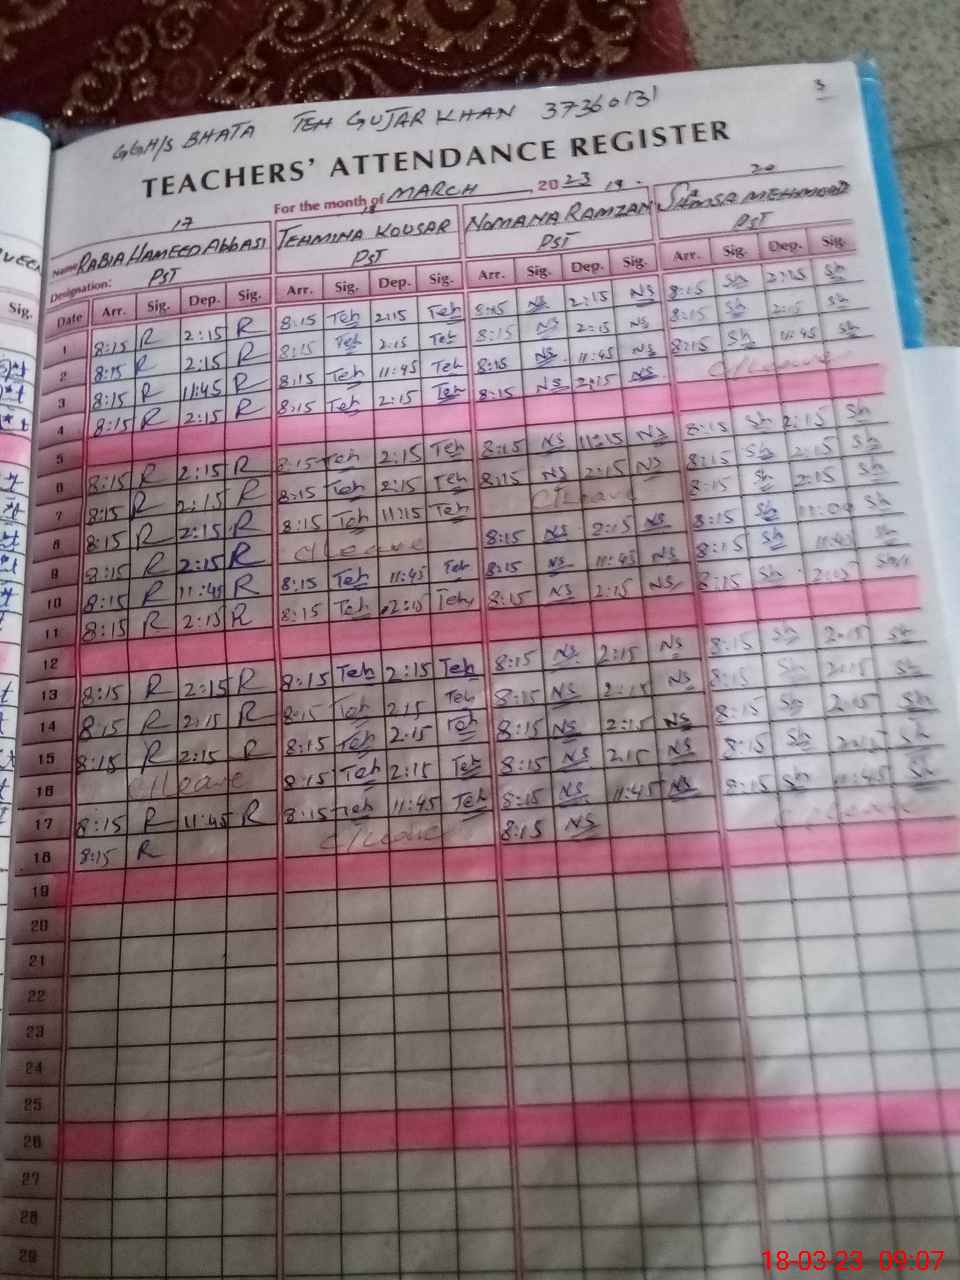 3
GGH/S BHATA TEH GUJAR KHAN 37360131
TEACHERS' ATTENDANCE REGISTER
For the month of MARCH, 2023
17 18 19. 20
Name RABIA HAMEED ABBASI TEHMINA KOUSAR NOMANA RAMZAN SHAMSA MEHMOOD
Designation: PST PST PST PST
Date Arr. Sig. Dep. Sig. Arr. Sig. Dep. Sig. Arr. Sig. Dep. Sig. Arr. Sig. Dep. Sig.
1 8:15 R 2:15 R 8:15 Teh 2:15 Teh 8:15 NS 2:15 NS 8:15 Sh 2:15 Sh
2 8:15 R 2:15 R 8:15 Teh 2:15 Teh 8:15 NS 2:15 NS 8:15 Sh 2:15 Sh
3 8:15 R 11:45 R 8:15 Teh 11:45 Teh 8:15 NS 11:45 NS 8:15 Sh 11:45 Sh
4 8:15 R 2:15 R 8:15 Teh 2:15 Teh 8:15 NS 2:15 NS C/Leave
5
6 8:15 R 2:15 R 8:15 Teh 2:15 Teh 8:15 NS NS 8:15 Sh 2:15 Sh
7 8:15 R 2:15 R 8:15 Teh 2:15 Teh 8:15 NS 2:15 NS 8:15 Sh 2:15 Sh
8 8:15 R 2:15 R 8:15 Teh 11:15 Teh C/Leave 8:15 Sh 2:15 Sh
9 8:15 R 2:15 R C/Leave 8:15 NS 2:15 NS 8:15 Sh Sh
10 8:15 R 11:45 R 8:15 Teh 11:45 Teh 8:15 NS 11:45 NS 8:15 Sh 11:45 Sh
11 8:15 R 2:15 R 8:15 Teh 2:15 Teh 8:15 NS 2:15 NS 8:15 Sh 2:15 Sh
12
13 8:15 R 2:15 R 8:15 Teh 2:15 Teh 8:15 NS 2:15 NS 8:15 Sh 2:15 Sh
14 8:15 R 2:15 R 8:15 Teh 2:15 Teh 8:15 NS 2:15 NS 8:15 Sh 2:15 Sh
15 8:15 R 2:15 R 8:15 Teh 2:15 Teh 8:15 NS 2:15 NS 8:15 Sh 2:15 Sh
16 C/Leave 8:15 Teh 2:15 Teh 8:15 NS 2:15 NS 8:15 Sh 2:15 Sh
17 8:15 R 11:45 R 8:15 Teh 11:45 Teh 8:15 NS 11:45 NS 8:15 Sh 11:45 Sh
18 8:15 R C/Leave 8:15 NS C/Leave
19
20
21
22
23
24
25
26
27
28
29
18-03-23 09:07